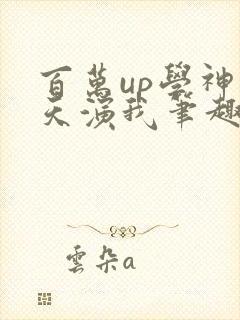 百萬up學神
天演我筆趣
雲朵a